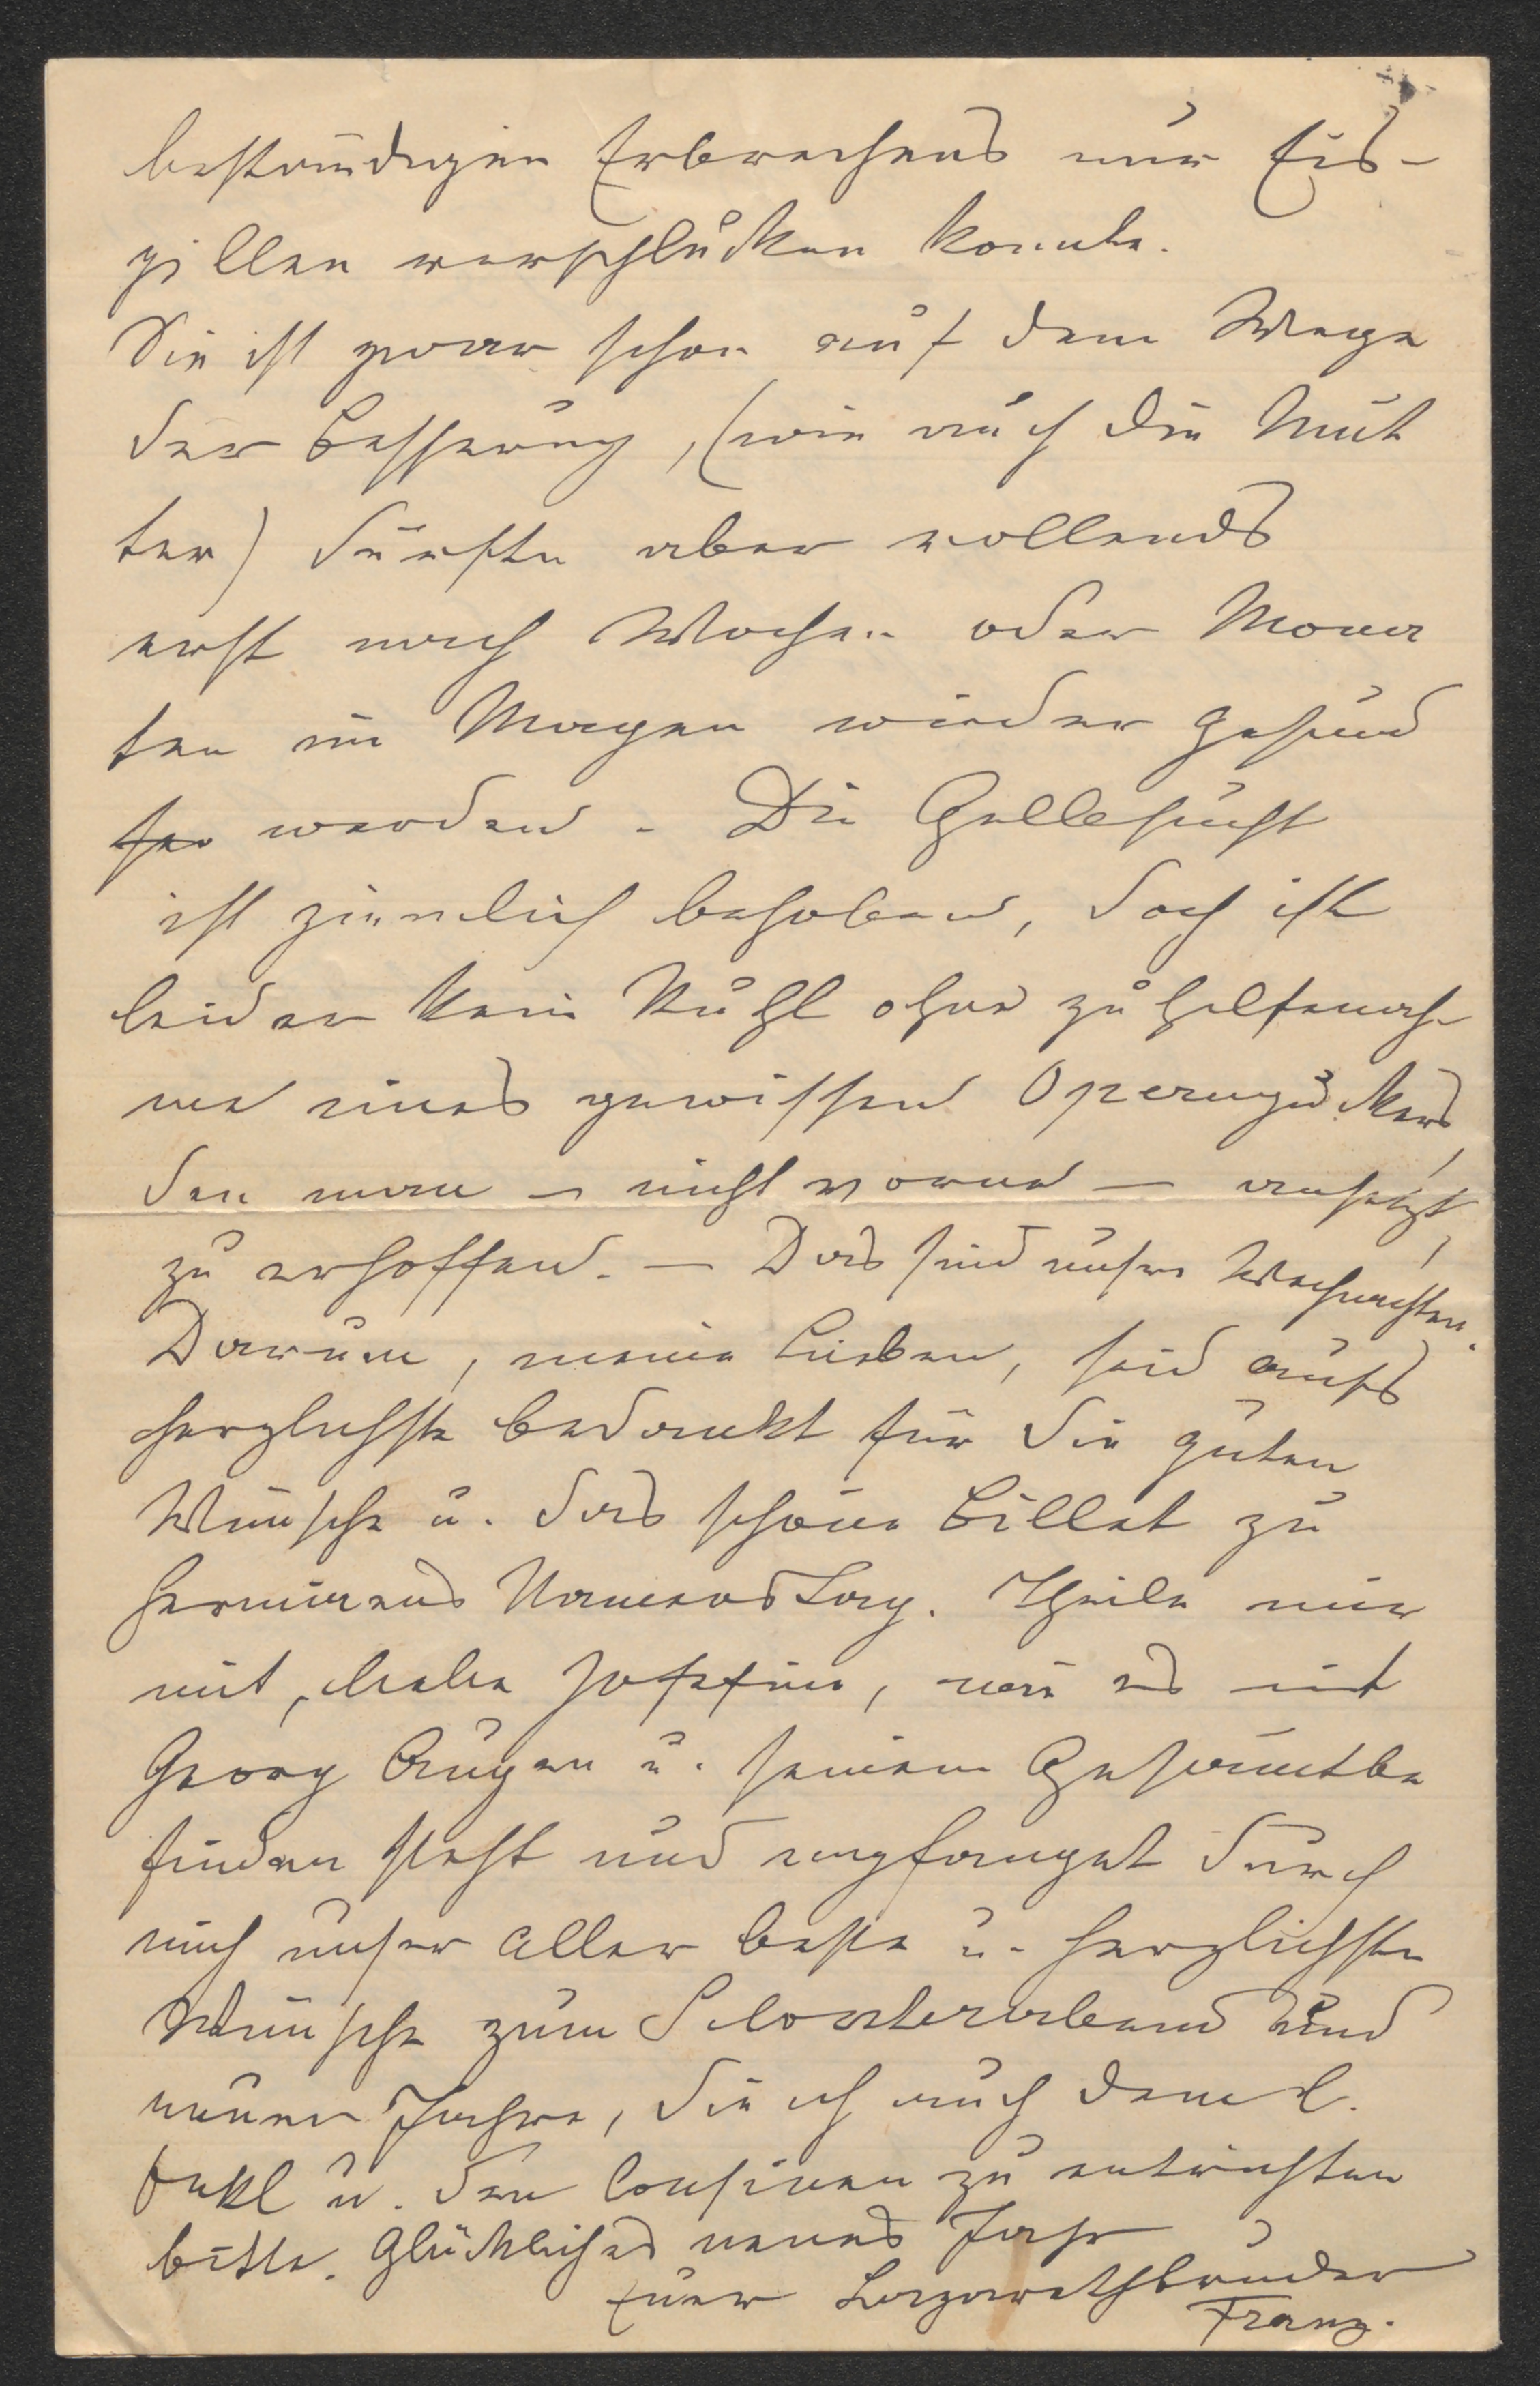 beständigen Erbrechens nur Eis-
pillen verschlucken konnte.
Sie ist zwar schon auf dem Wege
der Besserung, (wie auch die Mut
ter) dürfte aber vollends
erst nach Wochen oder Mona
ten im Magen wieder gesund
werden. Die Gallesucht
ist ziemlich behoben, doch ist
leider kein Stuhl ohne zuhilfenah
me eines gewissen Operngückers
den man – nicht vorne – ansetzt,
zu erhoffen. – Das sind unsre Weihnachten.
Darum, meine Lieben, seid aufs
herzlichste bedankt für die guten
Wünsche u. das schöne Billet zu
Herminens Namenstag. Theile mir
mit, liebe Josefine, wie es mit
Georg Augen u. seinem Gesammtbe
finden steht und empfanget durch
mich unser aller beste u. herzlichste
Wünsche zum Sylvesterabend und
neuen Jahre, die ich auch dem l.
Onkl u. den Cousinen zu entrichten
bitte. Glückliches neues Jahr
Euer Lazarethbruder
Franz.